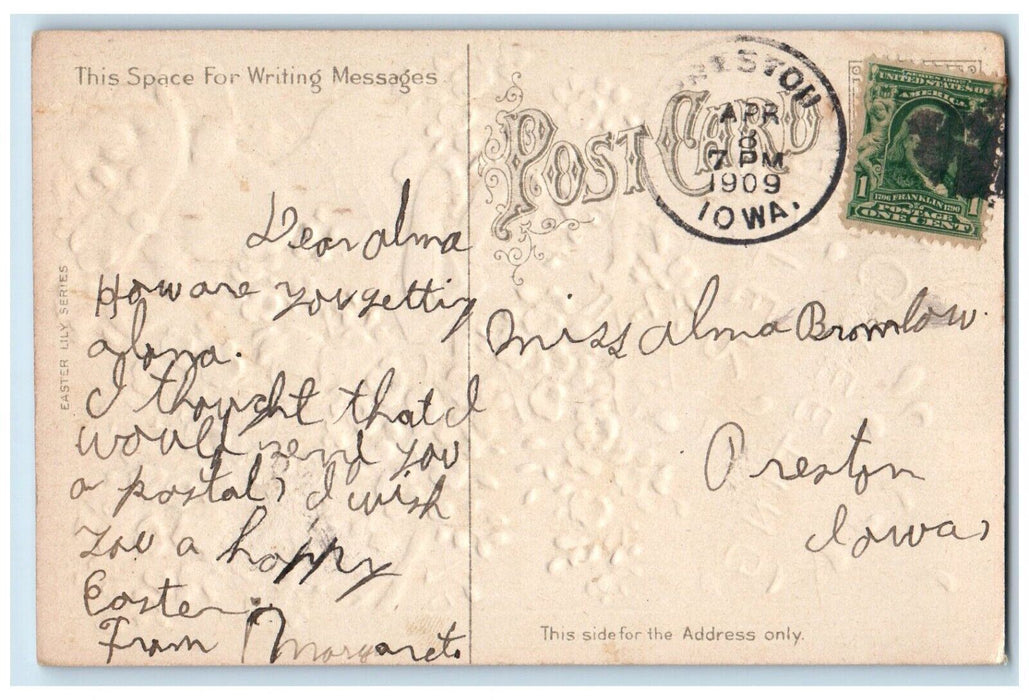 This Space For Writing Messages
POST CARD
PRESTON
APR
8
7 PM
1909
IOWA.
SERIES 1902
UNITED STATES OF
AMERICA
1706 FRANKLIN 1790
1 POSTAGE 1
ONE CENT
EASTER LILY SERIES
Dear Alma
How are you getting
along.
I thought that I
would send you
a postal, I wish
you a happy
Easter.
From Margaret
Miss Alma Bromlow.
Preston
Iowa,
This side for the Address only.